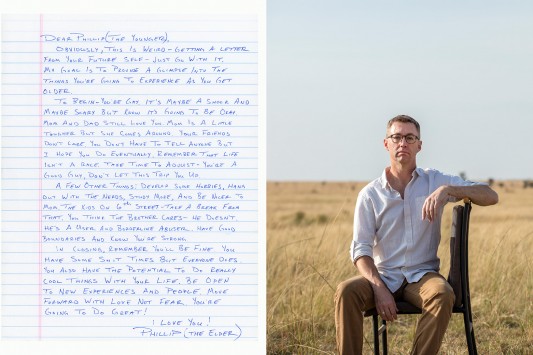 DEAR PHILLIP (THE YOUNGER),
OBVIOUSLY, THIS IS WEIRD - GETTING A LETTER
FROM YOUR FUTURE SELF - JUST GO WITH IT.
MY GOAL IS TO PROVIDE A GLIMPSE INTO THE
THINGS YOU'RE GOING TO EXPERIENCE AS YOU GET
OLDER.
TO BEGIN - YOU'RE GAY. IT'S MAYBE A SHOCK AND
MAYBE SCARY BUT KNOW IT'S GOING TO BE OKAY.
MOM AND DAD STILL LOVE YOU. MOM IS A LITTLE
TOUGHER BUT SHE COMES AROUND. YOUR FRIENDS
DON'T CARE. YOU DON'T HAVE TO TELL ANYONE BUT
I HOPE YOU DO EVENTUALLY. REMEMBER THAT LIFE
ISN'T A RACE. TAKE TIME TO ADJUST - YOU'RE A
GOOD GUY, DON'T LET THIS TRIP YOU UP.
A FEW OTHER THINGS: DEVELOP SOME HOBBIES, HANG
OUT WITH THE NERDS, STUDY MORE, AND BE NICER TO
MOM. THE KIDS ON 6TH STREET - TAKE A BREAK FROM
THAT. YOU THINK THE BROTHER CARES - HE DOESN'T.
HE'S A USER AND BORDERLINE ABUSER. HAVE GOOD
BOUNDARIES AND KNOW YOU'RE STRONG.
IN CLOSING, REMEMBER YOU'LL BE FINE. YOU
HAVE SOME SHIT TIMES BUT EVERYONE DOES.
YOU ALSO HAVE THE POTENTIAL TO DO REALLY
COOL THINGS WITH YOUR LIFE. BE OPEN
TO NEW EXPERIENCES AND PEOPLE. MOVE
FORWARD WITH LOVE NOT FEAR. YOU'RE
GOING TO DO GREAT!
I LOVE YOU!
PHILLIP (THE ELDER)